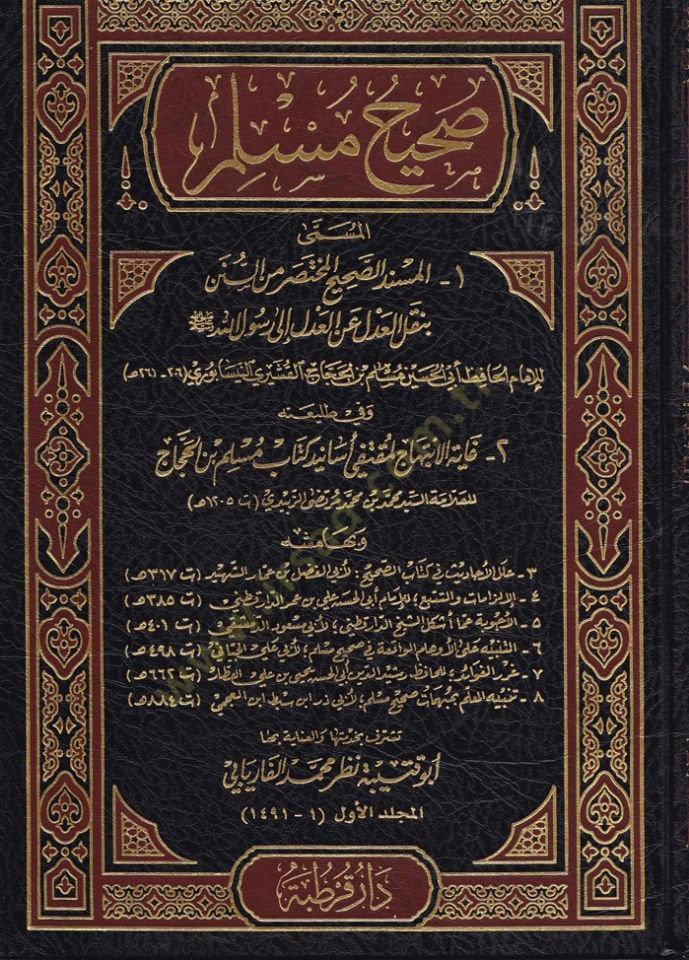 صَحِيحُ مُسْلِم
المُسَمَّى
١ - المسند الصحيح المختصر من السنن
بنقل العدل عن العدل إلى رسول الله ﷺ
للإمام الحافظ أبي الحسين مسلم بن الحجاج القشيري النيسابوري (٢٠٦ - ٢٦١هـ)
وفي طليعته
٢ - غاية الابتهاج لمقتفي أسانيد كتاب مسلم بن الحجاج
للعلامة السيد محمد بن محمد مرتضى الزبيدي (ت ١٢٠٥هـ)
وبهامشه
٣ - علل الأحاديث في كتاب الصحيح؛ لأبي الفضل بن عمار الشهيد (ت ٣١٧هـ)
٤ - الإلزامات والتتبع؛ للإمام أبي الحسن علي بن عمر الدارقطني (ت ٣٨٥هـ)
٥ - الأجوبة عما أشكل الشيخ الدارقطني؛ لأبي مسعود الدمشقي (ت ٤٠١هـ)
٦ - التنبيه على الأوهام الواقعة في صحيح مسلم؛ لأبي علي الجياني (ت ٤٩٨هـ)
٧ - غرر الفوائد؛ للحافظ رشيد الدين أبي الحسين يحيى بن علي العطار (ت ٦٦٢هـ)
٨ - تنبيه المعلم بمبهمات صحيح مسلم؛ لأبي ذر ابن سبط ابن العجمي (ت ٨٨٤هـ)
تشرف بخدمتها والعناية بها
أبو قتيبة نظر محمد الفاريابي
المجلد الأول (١ - ١٤٩١)
دار قرطبة